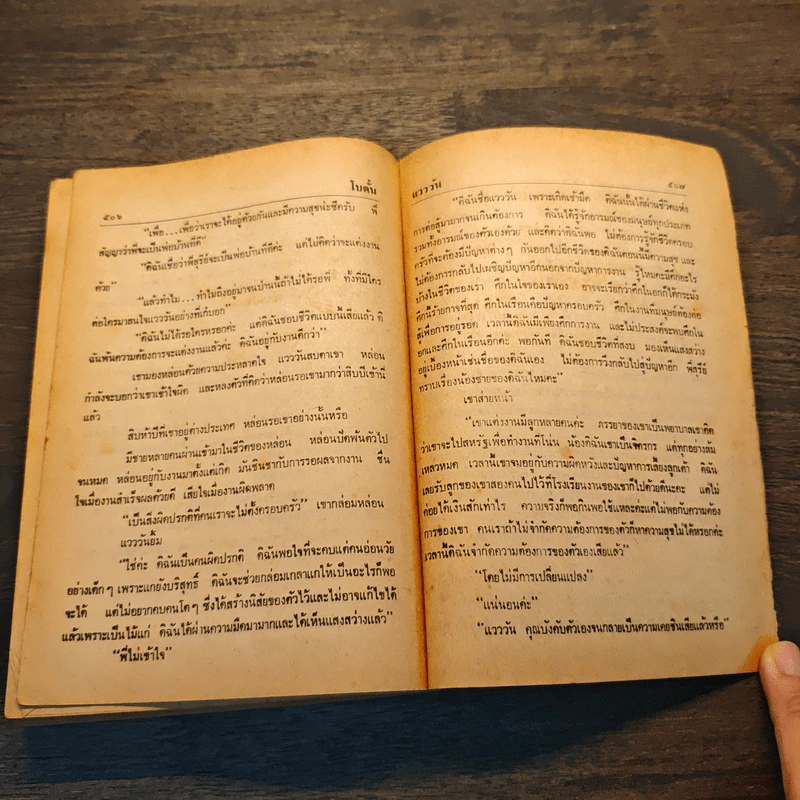 ๕๐๖
โบตั๋น
“เพื่อ...เพื่อว่าเราจะได้อยู่ด้วยกันและมีความสุขน่ะซีครับ พี่
สัญญาว่าพี่จะเป็นพ่อบ้านที่ดี”
“ดิฉันเชื่อว่าพี่สุรีย์จะเป็นพ่อบ้านที่ดีค่ะ แต่ไม่คิดว่าจะแต่งงาน
ด้วย”
“แล้วทำไม...ทำไมถึงอยู่มาจนป่านนี้ถ้าไม่ได้รอพี่ ทั้งที่มีใคร
ต่อใครมาสนใจแวววันอย่างที่เก็บอก”
“ดิฉันไม่ได้รอใครหรอกค่ะ แต่ดิฉันชอบชีวิตแบบนี้เสียแล้ว ดิ
ฉันพ้นความต้องการจะแต่งงานแล้วค่ะ ดิฉันอยู่กับงานดีกว่า”
เขามองหล่อนด้วยความประหลาดใจ แวววันสบตาเขา หล่อน
กำลังจะบอกว่าเขาเข้าใจผิด และหลงตัวที่คิดว่าหล่อนรอเขามากว่าสิบปีเช้านี้
แล้ว
สิบห้าปีที่เขาอยู่ต่างประเทศ หล่อนรอเขาอย่างนั้นหรือ
มีชายหลายคนผ่านเข้ามาในชีวิตของหล่อน หล่อนปัดพ้นตัวไป
จนหมด หล่อนอยู่กับงานมาตั้งแต่เกิด มันชินชากับการรอผลจากงาน ชื่น
ใจเมื่องานสำเร็จผลด้วยดี เสียใจเมื่องานผิดพลาด
“เป็นสิ่งผิดปรกติที่คนเราจะไม่ตั้งครอบครัว” เขากล่อมหล่อน
แวววันยิ้ม
“ใช่ค่ะ ดิฉันเป็นคนผิดปรกติ ดิฉันพอใจที่จะคบแต่คนอ่อนวัย
อย่างเด็กๆ เพราะแกยังบริสุทธิ์ ดิฉันจะช่วยกล่อมเกลาแกให้เป็นอะไรก็พอ
จะได้ แต่ไม่อยากคบคนโตๆ ซึ่งได้สร้างนิสัยของตัวไว้และไม่อาจแก้ไขได้
แล้วเพราะเป็นไม้แก่ ดิฉันได้ผ่านความมืดมามากและได้เห็นแสงสว่างแล้ว”
“พี่ไม่เข้าใจ”
แวววัน
๕๐๗
“ดิฉันชื่อแวววัน เพราะเกิดเช้ามืด ดิฉันนั้นได้ผ่านชีวิตแห่ง
การต่อสู้มามากจนเกินต้องการ ดิฉันได้รู้จักอารมณ์ของมนุษย์ทุกประเภท
รวมทั้งอารมณ์ของตัวเองด้วย และคิดว่าดิฉันพอ ไม่ต้องการรู้จักชีวิตครอบ
ครัวที่จะต้องมีปัญหาต่างๆ กันออกไปอีกชีวิตของดิฉันตอนนี้มีความสุข และ
ไม่ต้องการกลับไปเผชิญปัญหาอีกนอกจากปัญหาการงาน รู้ไหมคะมีศึกอะไร
บ้างในชีวิตของเรา ศึกในใจของเราเอง อาจจะเรียกว่าศึกในอกก็ได้กระมัง
ศึกนี้ร้ายกาจที่สุด ศึกในเรือนคือปัญหาครอบครัว ศึกในงานที่มนุษย์ต้องต่อ
สู้เพื่อการอยู่รอด เวลานี้ดิฉันมีเพียงศึกการงาน และไม่ประสงค์จะพบศึกใน
อกและศึกในเรือนอีกค่ะ พอกันที ดิฉันชอบชีวิตที่สงบ มองเห็นแสงสว่าง
อยู่เบื้องหน้าเช่นชื่อของดิฉันเอง ไม่ต้องการวิ่งกลับไปสู่ปัญหาอีก พี่สุรีย์
ทราบเรื่องน้องชายของดิฉันไหมคะ”
เขาส่ายหน้า
“เขาแต่งงานมีลูกหลายคนค่ะ ภรรยาของเขาเป็นพยาบาลเขาคิด
ว่าเขาจะไปสหรัฐเพื่อทำงานที่โน่น น้องดิฉันเขาเป็นจิตรกร แต่ทุกอย่างล้ม
เหลวหมด เวลานี้เขาจมอยู่กับความผิดหวังและปัญหาการเลี้ยงลูกเต้า ดิฉัน
เลยรับลูกของเขาสองคนไปไว้ที่โรงเรียนงานของเขาก็ไปด้วยดีนะคะ แต่ไม่
ค่อยได้เงินสักเท่าไร ความจริงก็พอกินพอใช้แหละคะแต่ไม่พอกับความต้อง
การของเขา คนเราถ้าไม่จำกัดความต้องการของตัวก็หาความสุขไม่ได้หรอกค่ะ
เวลานี้ดิฉันจำกัดความต้องการของตัวเองเสียแล้ว”
“โดยไม่มีการเปลี่ยนแปลง”
“แน่นอนค่ะ”
“แวววัน คุณบังคับตัวเองจนกลายเป็นความเคยชินเสียแล้วหรือ”